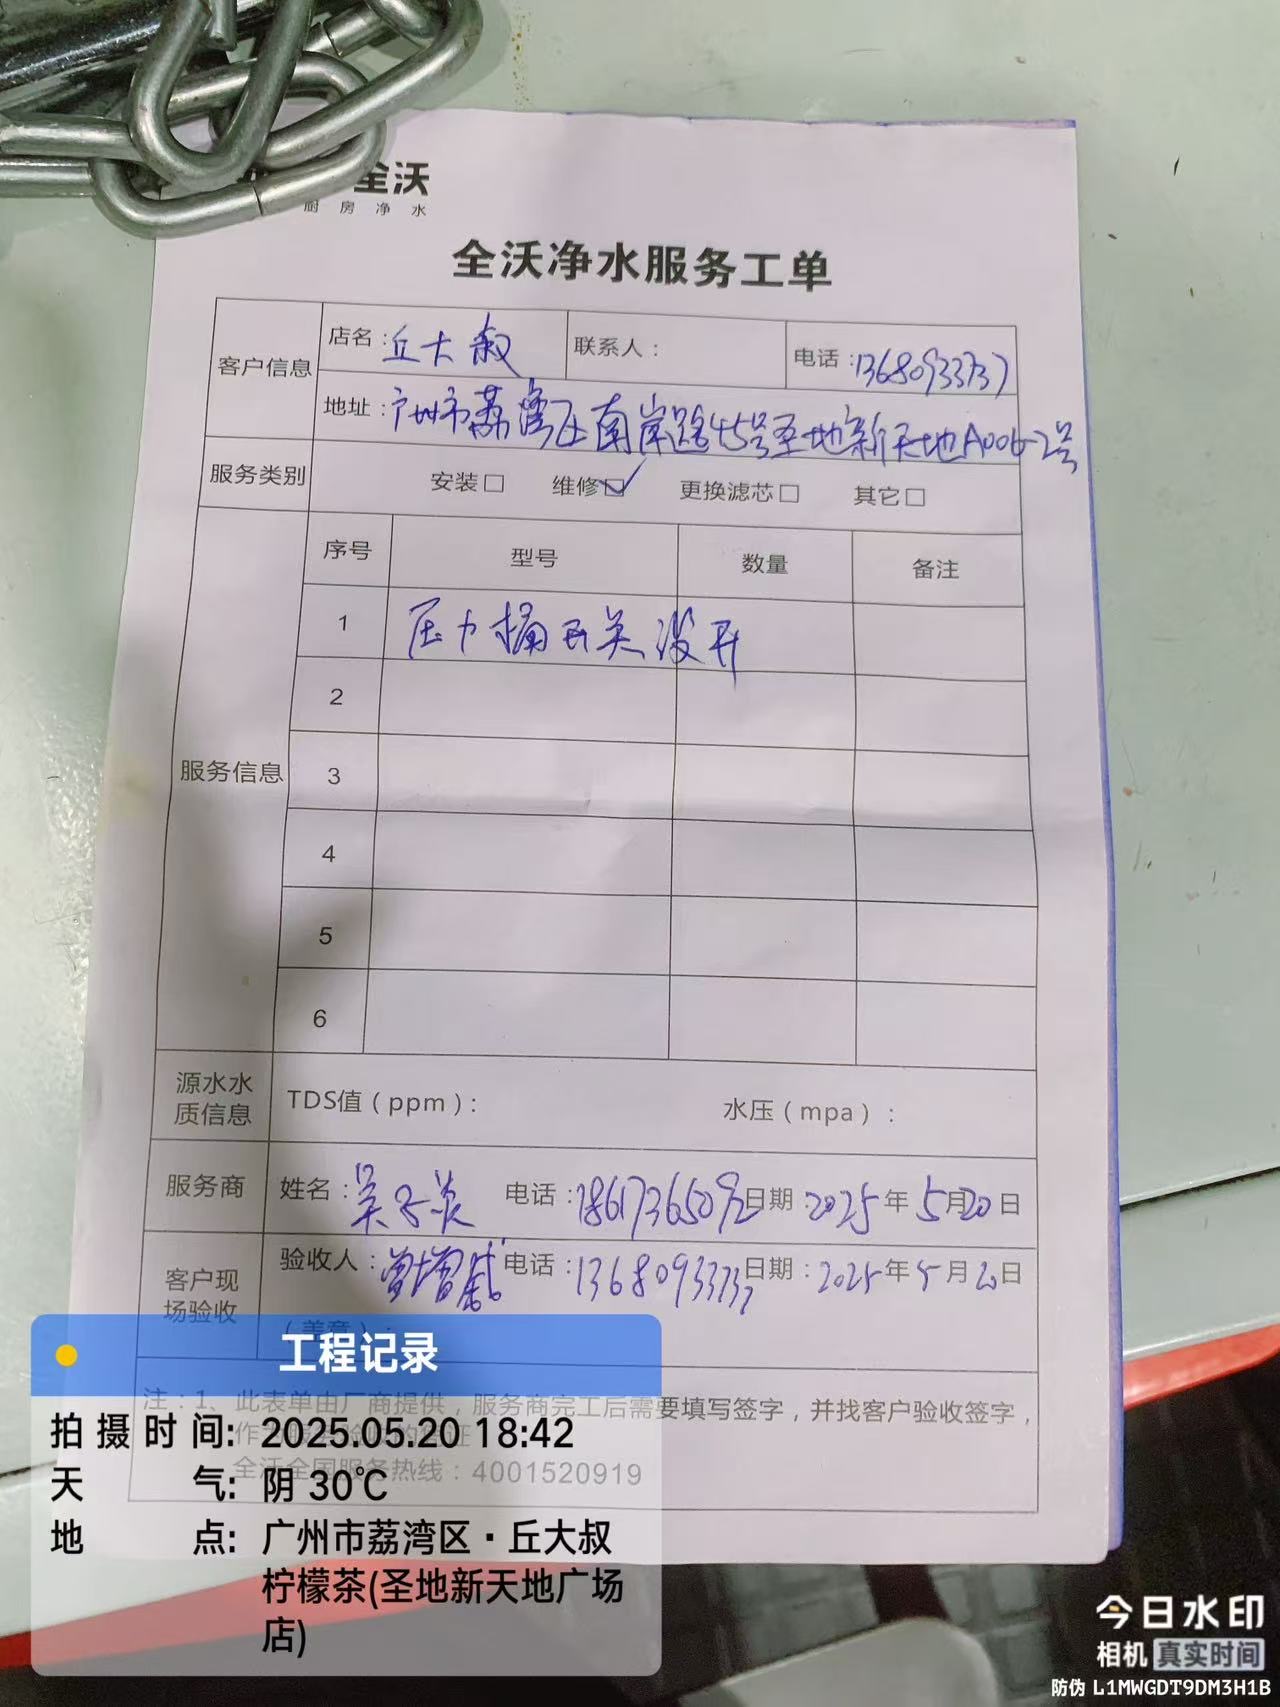 全沃
厨房净水
全沃净水服务工单
客户信息
店名：丘大叔
联系人：
电话：13680933737
地址：广州市荔湾区南岸路45号圣地新天地A006-2号
服务类别
安装□ 维修☑ 更换滤芯□ 其它□
服务信息
序号 型号 数量 备注
1 压力桶开关没开
2
3
4
5
6
源水水质信息
TDS值（ppm）： 水压（mpa）：
服务商
姓名： 电话：18617365092 日期：2025年5月20日
客户现场验收
验收人：曾增 电话：13680933737 日期：2025年5月20日
（盖章）：
注：1、此表单由厂商提供，服务商完工后需要填写签字，并找客户验收签字，
作为服务验收的凭证
全沃全国服务热线：4001520919
工程记录
拍摄时间：2025.05.20 18:42
天气：阴 30℃
地点：广州市荔湾区·丘大叔
柠檬茶(圣地新天地广场
店)
今日水印
相机 真实时间
防伪 L1MWGDT9DM3H1B